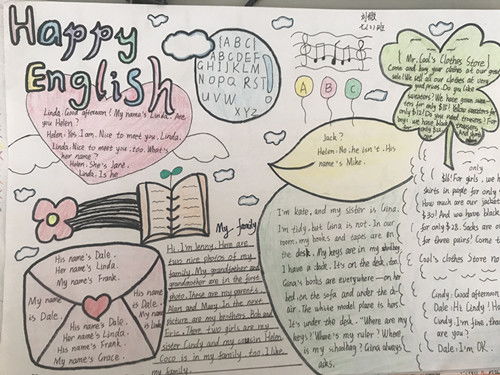 Happy
English
刘
七(1)班
ABC
ABCDEF
GHIJKLM
NOPQ RST
UVW
XYZ
A B C
Linda: Good afternoon! My name's Linda. Are
you Helen?
Helen: Yes, I am. Nice to meet you, Linda.
Linda: Nice to meet you, too. What's
her name?
Helen: She's Jane.
Linda: Is he
Jack?
Helen: No, he isn't. His
name's Mike.
Mr. Cool's Clothes Store
Come and buy your clothes at our great
sale! We sell all our clothes at very
good prices. Do you like
sweaters? We have green
for only
boys, we have black
only
For girls, we h
skirts in purple for only
How much are our jacket
$30! And we have black
for only $28. Socks are o
for three pairs! Come t
Cool's Clothes Store no
My family
Hi, I'm Jenny. Here are
two nice photos of my
family. My grandfather and
grandmother are in the first
photo. These are my parents,
Alan and Mary. In the next
picture are my brothers, Bob and
Eric. These two girls are my
sister Cindy and my cousin Helen.
Coco is in my family, too. I like
my family.
I'm Kate, and my sister is Gina.
I'm tidy, but Gina is not. In our
room, my books and tapes are on
the desk. My keys are in my schoolbag.
I have a clock. It's on the desk.
Gina's books are everywhere — on her
bed, on the sofa and under the ch-
air. The white model plane is hers.
It's under the desk. "Where are my
keys? Where's my ruler? Where
is my schoolbag? Gina always
asks.
His name's Dale.
Her name's Linda.
My name's Frank.
My name
is Dale.
His name's
is Dale.
My name
is Lin
His name's Dale.
Her name's Linda.
His name's Frank.
My name's Grace.
Cindy: Good afternoon
Dale: Hi, Cindy! Ho
Cindy: I'm fine, than
are you?
Dale: I'm OK.